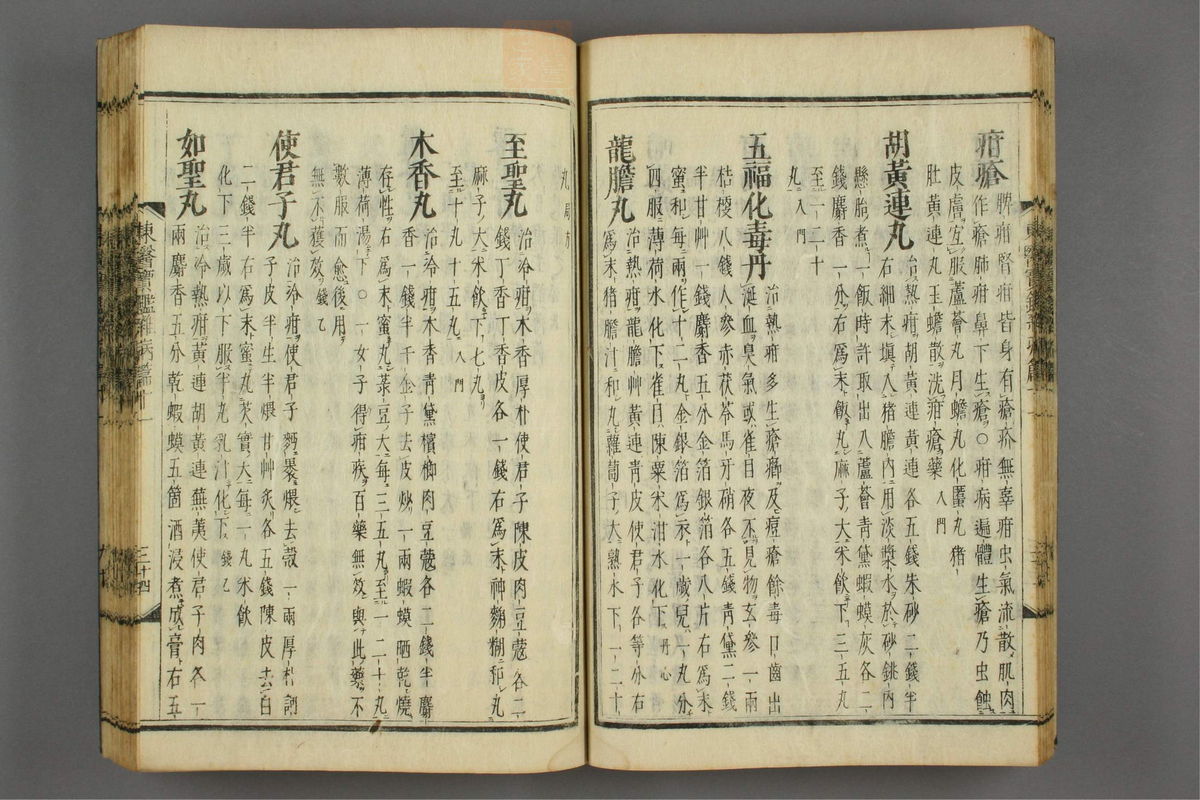 疳瘡脾疳腎疳皆身有瘡疥無辜疳虫氣流散肌肉
作瘡肺疳鼻下生瘡○疳病遍體生瘡乃虫蝕
皮膚宜服蘆薈丸月蟾丸化䘌丸猪
肚黃連丸玉蟾散洗疳瘡藥入門
胡黃連丸治熱疳胡黃連黃連各五錢朱砂二錢半
右細末塡入猪膽內用淡漿水於砂銚內
懸胎煮一飯時許取出入蘆薈靑黛蝦蟆灰各二
錢麝香一分右爲末飯丸麻子大米飮下三五丸
至一二十
丸入門
五福化毒丹治熱疳多生瘡癤及痘瘡餘毒口齒出
涎血臭氣或雀目夜不見物玄參一兩
桔梗八錢人參赤茯苓馬牙硝各五錢靑黛二錢
半甘艸一錢麝香五分金箔銀箔各八片右爲末
蜜和每兩作十二丸金銀箔爲衣一歲兒一丸分
四服薄荷水化下雀目陳粟米泔水化下丹心
龍膽丸治熱疳龍膽艸黃連靑皮使君子各等分右
爲末猪膽汁和丸蘿葍子大熟水下一二十
丸局方
至聖丸治冷疳木香厚朴使君子陳皮肉豆蔻各二
錢丁香丁香皮各一錢右爲末神麴糊和丸
麻子大米飮下七丸
至十丸十五丸入門
木香丸治冷疳木香靑黛檳榔肉豆蔻各二錢半麝
香一錢半千金子去皮炒一兩蝦蟆晒乾燒
存性右爲末蜜丸菉豆大每三五丸至一二十丸
薄荷湯下○一女子得疳疾百藥無效與此藥不
數服而愈後用
無不獲效錢乙
使君子丸治冷疳使君子麪褁煨去殼一兩厚朴訶
子皮半生半煨甘艸炙各五錢陳皮去白
二錢半右爲末蜜丸芡實大每一丸米飮
化下三歲以下服半丸乳汁化下錢乙
如聖丸治冷熱疳黃連胡黃連蕪荑使君子肉各一
兩麝香五分乾蝦蟆五箇酒浸煮成膏右五
東醫寶鑑雜病篇十一
三十四